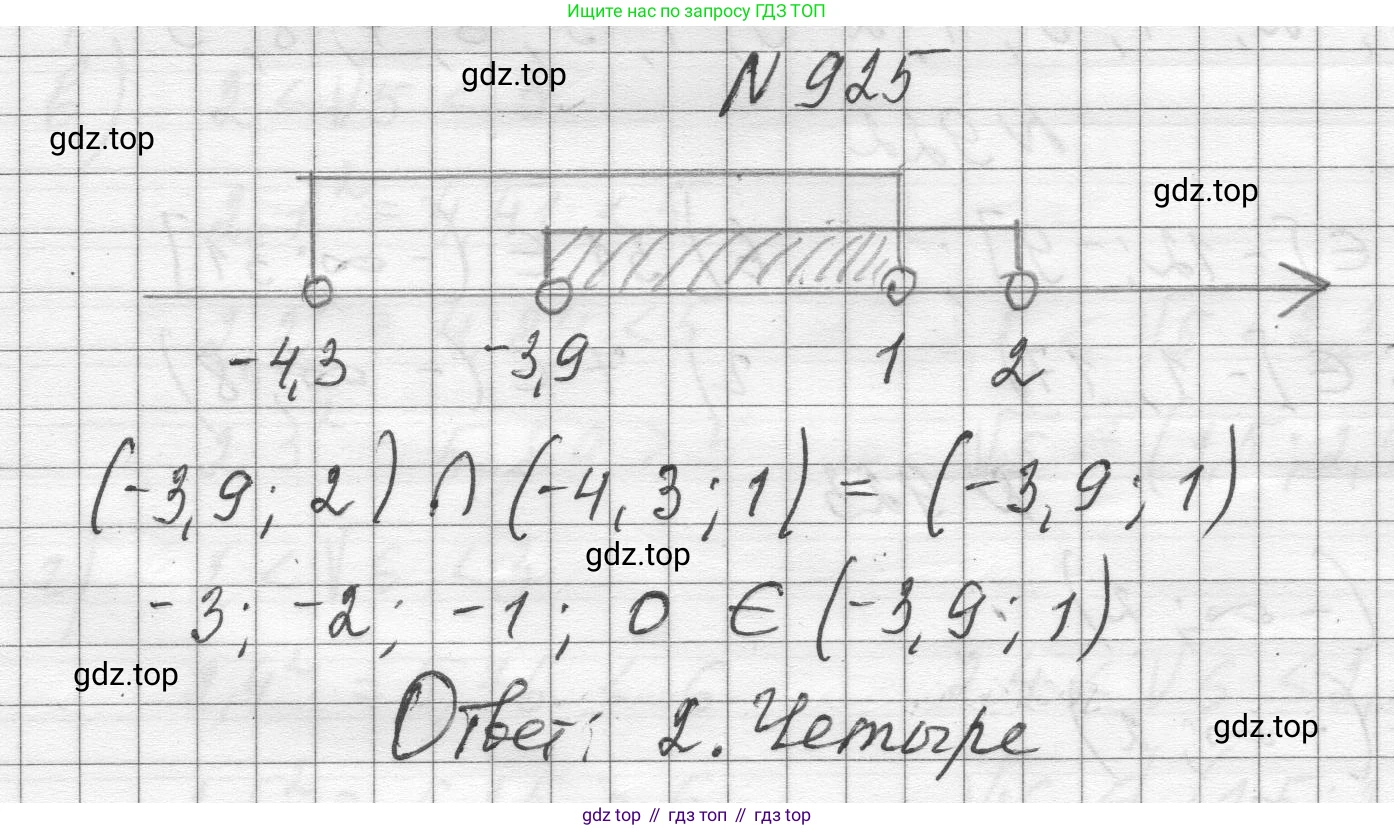 Ищите нас по запросу ГДЗ ТОП
N 925
gdz.top
gdz.top
gdz.top
-4,3 -3,9 1 2
(-3,9; 2) ∩ (-4,3; 1) = (-3,9; 1)
gdz.top
-3; -2; -1; 0 ∈ (-3,9; 1)
gdz.top
Ответ: 2. Четыре
gdz.top
gdz top // гдз топ // гдз top